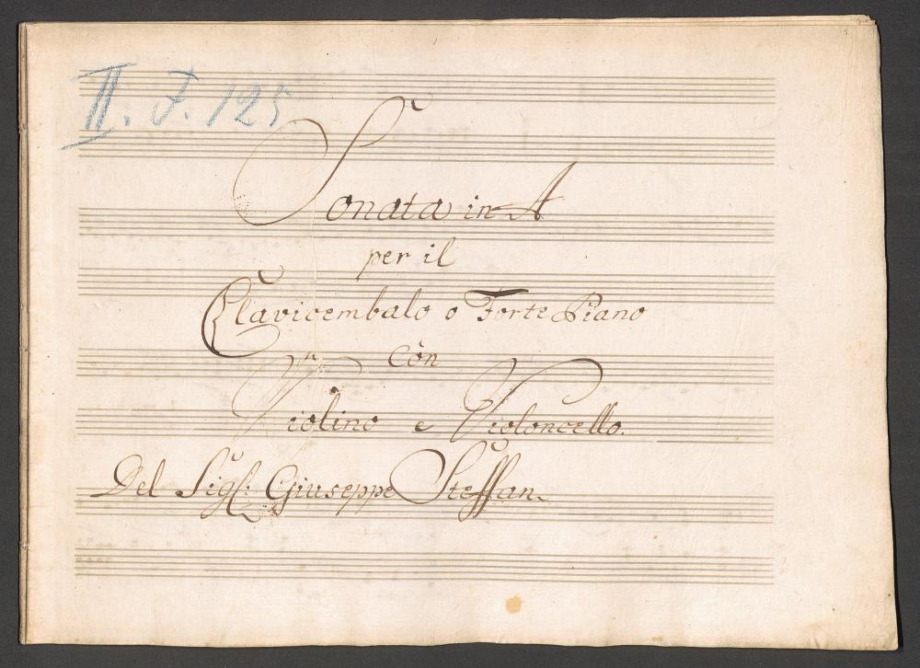 II. J. 125
Sonata in A
per il
Clavicembalo o Forte Piano
Còn
Violino e Violoncello.
Del Sigr: Giuseppe Steffan